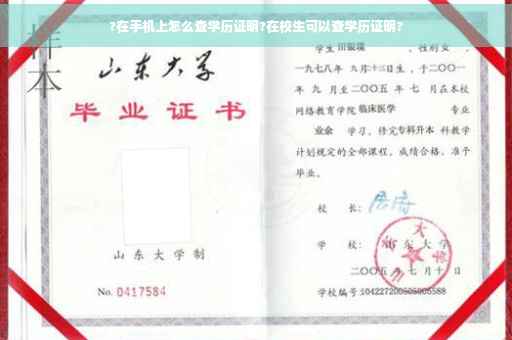 ?在手机上怎么查学历证明?在校生可以查学历证明?
样本
山东大学
毕业证书
山东大学制
No. 0417584
学生田银瑞 ，性别女 ，
一九七八年 九月十三日生，于二〇〇一
年 九 月至二〇〇五 年 七 月在本校
网络教育学院临床医学 专业
业余 学习，修完专科升本 科教学
计划规定的全部课程，成绩合格，准予
毕业。
校 长：
学 校：山东大学
二〇〇五年七月十日
学校编号:104227200505005588